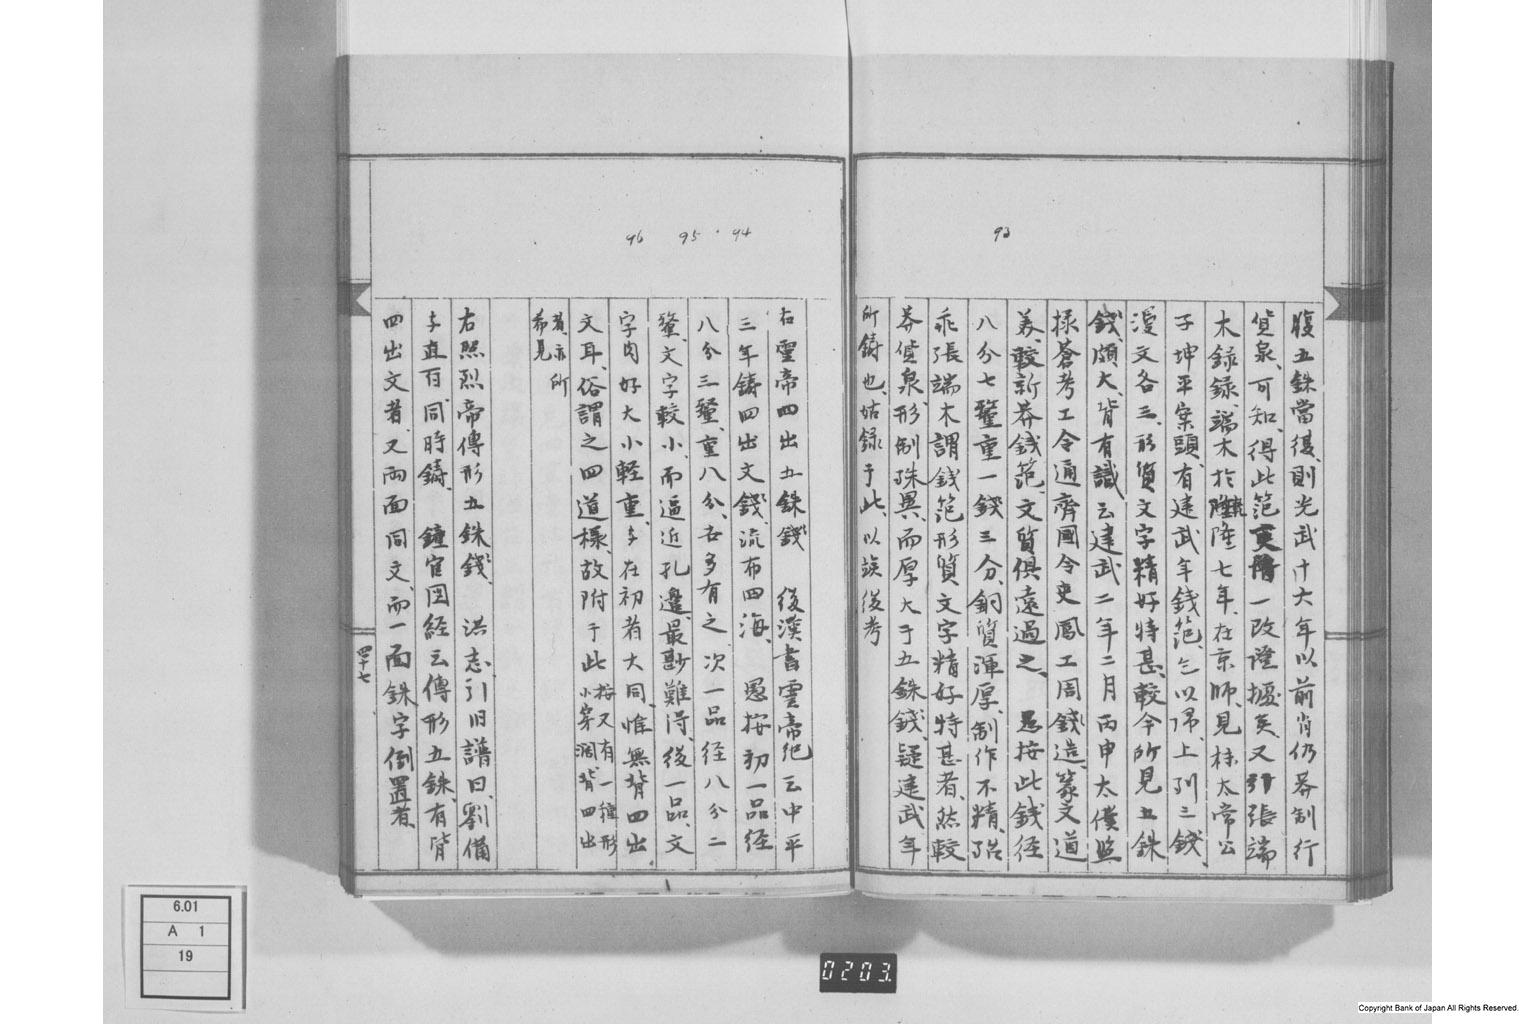 93
腹五銖當復則光武十六年以前肖仍莽制行
貨泉可知得此笵一改證據矣又引張端
木錄錄端木於隆七年在京師見桂太常公
子坤平案頭有建武年錢笵三以歸上列三錢
漫文各三形質文字精好特甚較今所見五銖
錢頗大背有識云建武二年二月丙申太僕監
掾蒼考工令通齊國令史鳳工周錢造篆文道
美較新莽錢笵文質俱遠過之 愚按此錢径
八分七釐重一錢三分銅質渾厚制作不精
乖張端木謂錢笵形質文字精好特甚者然較
莽貨泉形制殊異而厚大于五銖錢疑建武年
所鋳也姑録于此以竢後考
94 95 96
右靈帝四出五銖錢 後漢書霊帝紀云中平
三年鋳四出文錢流布四海 愚按初一品径
八分三釐重八分右多有之次一品径八分二
釐文字較小而逼近孔邊最尠難淂後一品文
字肉好大小軽重与在初者大同惟無背四出
文耳俗謂之四道樣故附于此按又有一種形
小穿濶背四出
者亦所
希見
右照烈帝傳形五銖錢 洪志引旧譜曰劉備
与直百同時鋳 鐘官圖経云傳形五銖有背
四出文者又両面同文而一面銖字倒置者
四十七
6.01
A 1
19
0203
Copyright Bank of Japan All Rights Reserved.